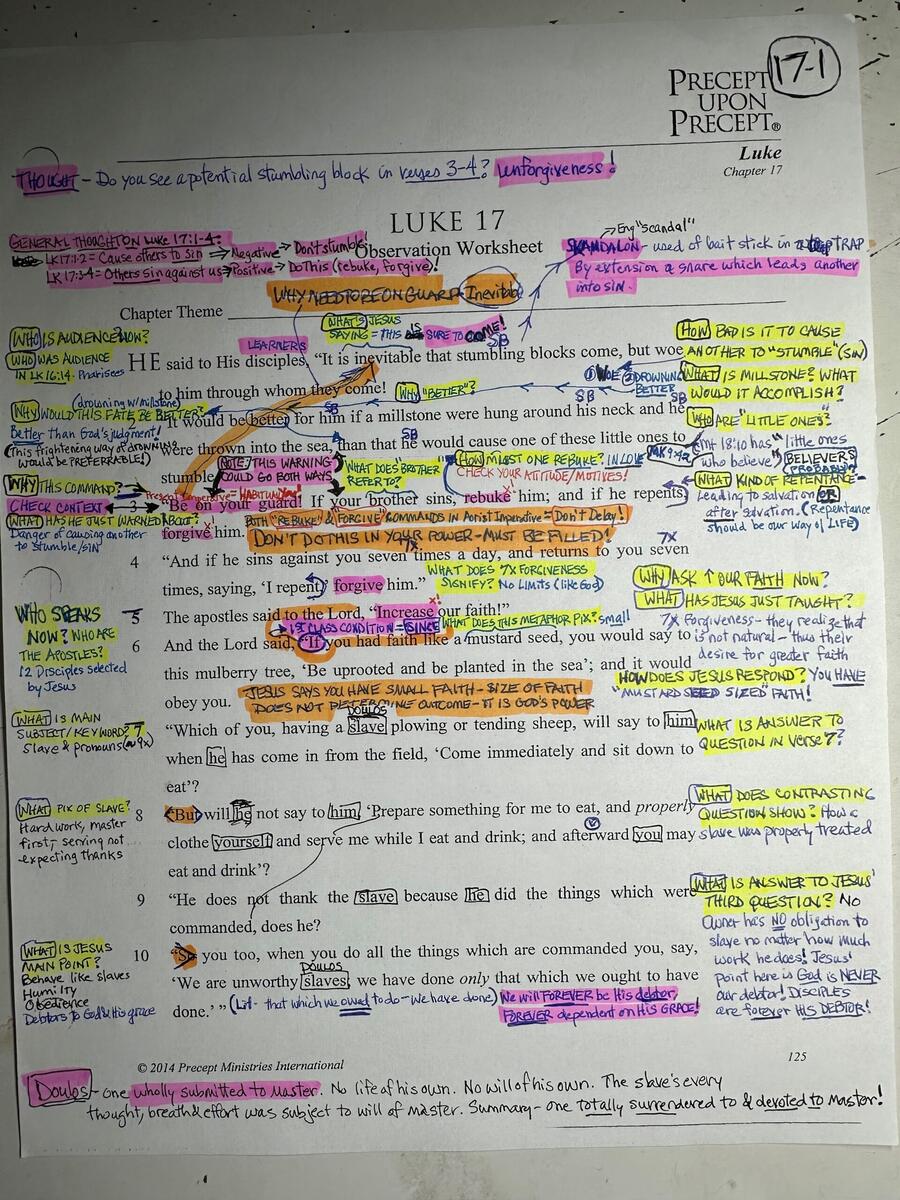 17-1
PRECEPT
UPON
PRECEPT®
Luke
Chapter 17
THOUGHT - Do you see a potential stumbling block in verses 3-4? Unforgiveness!
LUKE 17
Observation Worksheet
GENERAL THOUGHT ON Luke 17:1-4:
LK 17:1-2 = Cause others to sin → Negative → Don't stumble!
LK 17:3-4 = Others sin against us → Positive → Do This (rebuke, forgive)!
→ Eng "scandal"
SKANDALON - used of bait stick in a TRAP
By extension a snare which leads another
into SIN.
WHY NEED TO BE ON GUARD - Inevitable
Chapter Theme
WHAT IS JESUS
SAYING = THIS IS SURE TO COME!
LEARNERS
SB
WHO IS AUDIENCE NOW?
WHO WAS AUDIENCE
IN LK 16:14 - Pharisees
HOW BAD IS IT TO CAUSE
ANOTHER TO "STUMBLE" (SIN)
WHAT IS MILLSTONE? WHAT
WOULD IT ACCOMPLISH?
HE said to His disciples, "It is inevitable that stumbling blocks come, but woe
to him through whom they come!
WHY "BETTER"?
① WOE ② DROWNING
BETTER
SB
SB
(drowning w/millstone)
WHY WOULD THIS FATE BE BETTER?
Better than God's judgment!
(This frightening way of DROWNING
would be PREFERRABLE!)
2 "It would be better for him if a millstone were hung around his neck and he
SB
were thrown into the sea, than that he would cause one of these little ones to
stumble.
WHO ARE "LITTLE ONES"?
(Mt 18:10 has "little ones
who believe") BELIEVERS
(PROBABLY)
NOTE: THIS WARNING
COULD GO BOTH WAYS
WHAT DOES "BROTHER"
REFER TO?
HOW MUST ONE REBUKE? IN LOVE
CHECK YOUR ATTITUDE/MOTIVES!
MK 9:42
WHAT KIND OF REPENTANCE-
Leading to salvation OR
after salvation. (Repentance
should be our way of LIFE)
WHY THIS COMMAND?
CHECK CONTEXT
WHAT HAS HE JUST WARNED ABOUT?
Danger of causing another
to stumble/sin
Present Imperative = HABITUAL
3 "Be on your guard! If your brother sins, rebuke him; and if he repents,
forgive him.
BOTH "REBUKE" & "FORGIVE" COMMANDS IN Aorist Imperative = Don't Delay!
DON'T DO THIS IN YOUR POWER - MUST BE FILLED!
7X
7X
4 "And if he sins against you seven times a day, and returns to you seven
times, saying, 'I repent,' forgive him."
WHAT DOES 7X FORGIVENESS
SIGNIFY? No Limits (like God)
WHY ASK ↑ OUR FAITH NOW?
WHAT HAS JESUS JUST TAUGHT?
7X Forgiveness - they realize that
is not natural - thus their
desire for greater faith
WHO SPEAKS
NOW? WHO ARE
THE APOSTLES?
12 Disciples selected
by Jesus
5 The apostles said to the Lord, "Increase our faith!"
1ST CLASS CONDITION = SINCE
WHAT DOES THIS METAPHOR PIX? small
6 And the Lord said, "If you had faith like a mustard seed, you would say to
this mulberry tree, 'Be uprooted and be planted in the sea'; and it would
obey you.
JESUS SAYS YOU HAVE SMALL FAITH - SIZE OF FAITH
DOES NOT DETERMINE OUTCOME - IT IS GOD'S POWER
HOW DOES JESUS RESPOND? YOU HAVE
"MUSTARD SEED SIZED" FAITH!
WHAT IS MAIN
SUBJECT/KEY WORD?
Slave & pronouns (~9x)
DOULOS
7 "Which of you, having a slave plowing or tending sheep, will say to him
when he has come in from the field, 'Come immediately and sit down to
eat'?
WHAT IS ANSWER TO
QUESTION IN verse 7?
WHAT PIX OF SLAVE?
Hard work, master
first, serving not
expecting thanks
8 "But will he not say to him, 'Prepare something for me to eat, and properly
clothe yourself and serve me while I eat and drink; and afterward you may
eat and drink'?
WHAT DOES CONTRASTING
QUESTION SHOW? How a
slave was properly treated
9 "He does not thank the slave because he did the things which were
commanded, does he?
WHAT IS ANSWER TO JESUS'
THIRD QUESTION? NO
Owner has NO obligation to
slave no matter how much
work he does! Jesus'
point here is God is NEVER
our debtor! DISCIPLES
are forever HIS DEBTOR!
WHAT IS JESUS
MAIN POINT?
Behave like slaves
Humility
Obedience
Debtors to God & His grace
10 "So you too, when you do all the things which are commanded you, say,
DOULOS
'We are unworthy slaves; we have done only that which we ought to have
done.' "
(Lit - that which we owed to do - we have done)
We will FOREVER be His debtor,
FOREVER dependent on HIS GRACE!
© 2014 Precept Ministries International
125
DOULOS - one wholly submitted to master. No life of his own. No will of his own. The slave's every
thought, breath & effort was subject to will of master. Summary - one totally surrendered to & devoted to master!